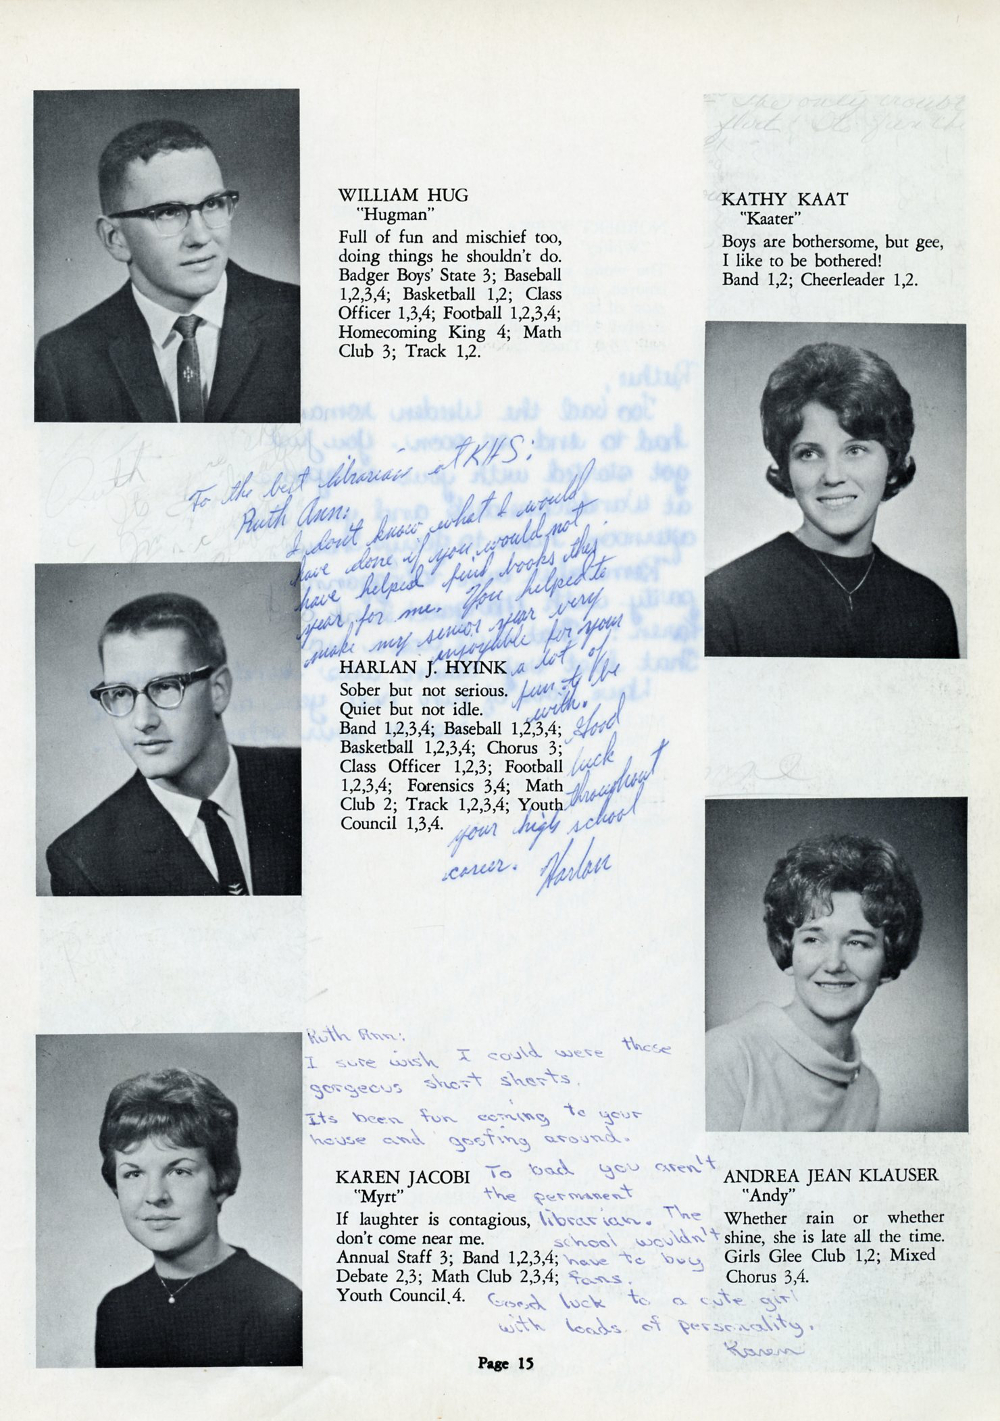 WILLIAM HUG
"Hugman"
Full of fun and mischief too,
doing things he shouldn't do.
Badger Boys' State 3; Baseball
1,2,3,4; Basketball 1,2; Class
Officer 1,3,4; Football 1,2,3,4;
Homecoming King 4; Math
Club 3; Track 1,2.
KATHY KAAT
"Kaater"
Boys are bothersome, but gee,
I like to be bothered!
Band 1,2; Cheerleader 1,2.
To the best librarian at KHS:
Ruth Ann:
I don't know what I would
have done if you would not
have helped find books this
year for me. You helped to
make my senior year very
enjoyable for your
a lot of
fun to be
with.
Good
luck
throughout
your high school
career. Harlan
HARLAN J. HYINK
Sober but not serious.
Quiet but not idle.
Band 1,2,3,4; Baseball 1,2,3,4;
Basketball 1,2,3,4; Chorus 3;
Class Officer 1,2,3; Football
1,2,3,4; Forensics 3,4; Math
Club 2; Track 1,2,3,4; Youth
Council 1,3,4.
Ruth Ann:
I sure wish I could were those
gorgeous short shorts.
Its been fun coming to your
house and goofing around.
To bad you aren't
the permanent
librarian. The
school wouldn't
have to buy
fans.
Good luck to a cute girl
with loads of personality.
Karen
KAREN JACOBI
"Myrt"
If laughter is contagious,
don't come near me.
Annual Staff 3; Band 1,2,3,4;
Debate 2,3; Math Club 2,3,4;
Youth Council 4.
ANDREA JEAN KLAUSER
"Andy"
Whether rain or whether
shine, she is late all the time.
Girls Glee Club 1,2; Mixed
Chorus 3,4.
Page 15